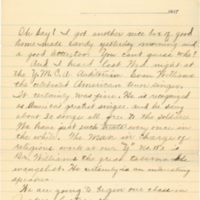 Oh boy! I got another nice box of good
home made candy yesterday morning and
a good letter, too. You can't guess who?
And I heard last Wed. night at
the Y.M.C.A. Auditorium Evan Williams
the celebrated American tenor singer.
It certainly was fine. He is recognized
as America's greatest singer, and he sang
about 20 songs all free to the soldiers.
We have got such treats now, once in
the while. The man in charge of
religious work at our "Y" No
is
Dr. Williams the great
evangelist. He certainly is an interesting
speaker.
We are going to begin our class in